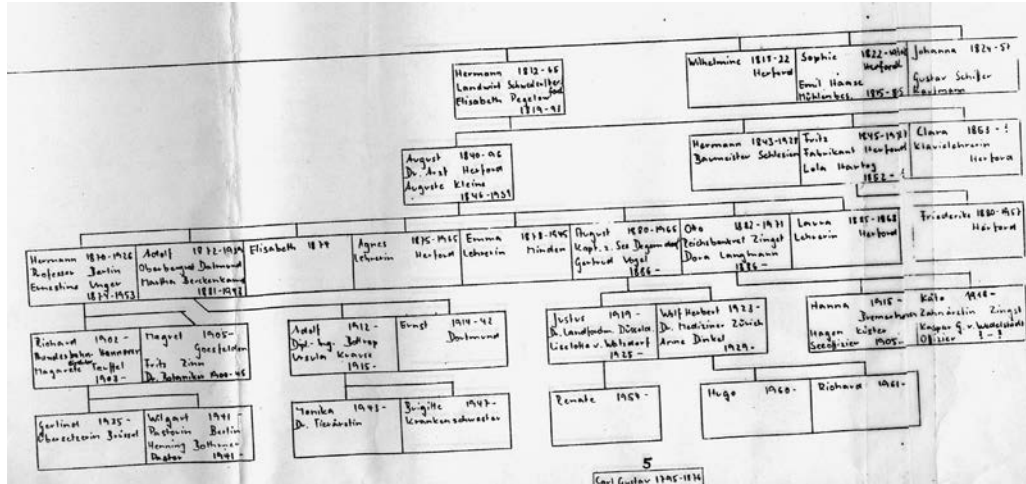 Hermann 1812-65
Landwirt
Elisabeth Pegelow
1819-93
Wilhelmine 1818-22
Herford
Sophie 1822-
Herford
Emil Haase
Mühlenbes. 1815-85
Johanna 1824-51
Gustav
Kaufmann
August 1840-96
Dr. Arzt Herford
Auguste Kleine
1846-1939
Hermann 1843-1928
Baumeister Schlesien
Fritz 1845-
Fabrikant Herford
Lola Hartog
1862-
Clara 1863-?
Klavierlehrerin
Herford
Hermann 1870-1926
Professor Berlin
Ernestine Unger
1874-1953
Adolf 1872-
Martha
1881-1943
Elisabeth 1874
Agnes 1875-1965
Lehrerin Herford
Emma 1878-1945
Lehrerin Minden
August 1880-1965
Kapt. z. See
Gertrud Vogel
1886-
Otto 1882-1971
Zingst
Dora Langmann
1886-
Laura 1885-1868
Lehrerin Herford
Friederike 1880-1957
Herford
Richard 1902-
Hannover
1903-
Magret 1905-
Fritz Zinn
Dr. Botaniker 1900-45
Adolf 1912-
Dipl-Ing. Bottrop
Ursula Krause
1915-
Ernst 1914-42
Dortmund
Justus 1919-
Liselotte v.
1925-
Wolf Herbert 1923-
Dr. Mediziner Zürich
Anne Dinkel
1929-
Hanna 1915-
Bremerhaven
Hagen Küster
Seeoffizier 1905-
Käte 1918-
Zahnärztin Zingst
Kaspar G. v.
Offizier ?-?
Gerlind 1935-
Übersetzerin Brüssel
Wilgart 1941-
Pastorin Berlin
Henning
Pastor 1941-
Monika 1943-
Dr. Tierärztin
Brigitte 1947-
Krankenschwester
Renate 1957-
Hugo 1960-
Richard 1961-
5
Carl Gustav 1795-1876